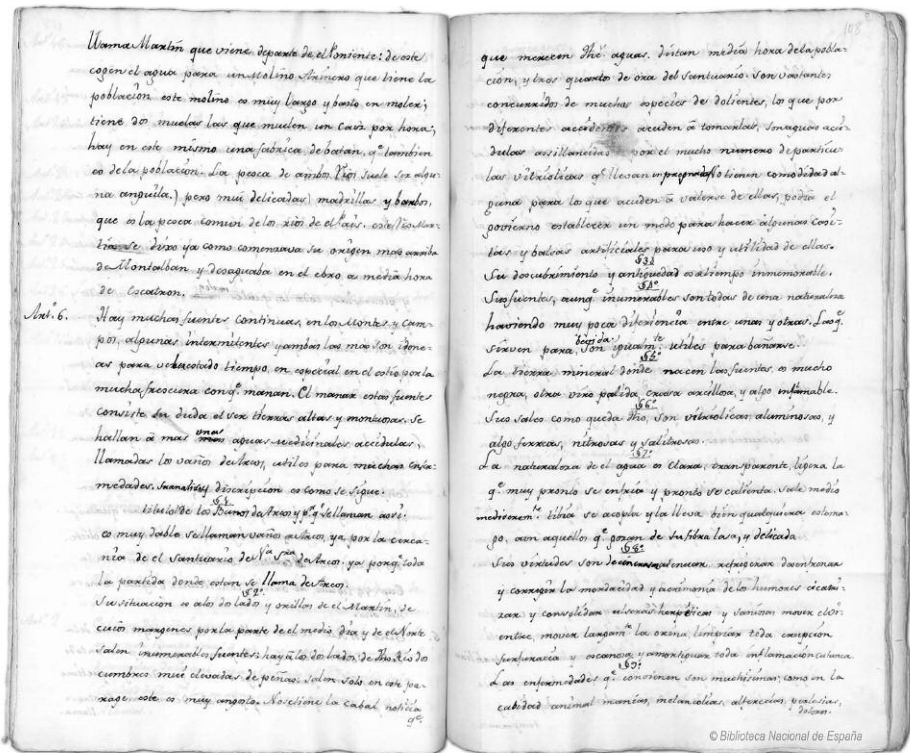 llama Martin que viene de parte de el Poniente: de este
cogen el agua para un Molino Arinero que tiene la
poblacion este molino es muy largo y basto en moler;
tiene dos muelas las que muelen un caiz por hora;
hay en este mismo una fabrica de batan, qe. tambien
es de la poblacion. La pesca de ambos Rios suele ser algu-
na anguila,) pero mui delicadas) madrillas y barbos,
que es la pesca comun de los rios de el Pais. este Rio Mar-
tin se dixo ya como comenzava su origen mas arriba
de Montalban y desaguaba en el ebro a media hora
de Escatron.
Art. 6.
Hay muchas fuentes continuas, en los Montes y Cam-
pos, algunas intermitentes y ambas las mas son idone-
as para el estado tiempo, en especial en el estio por la
mucha frescura con qe. manan. El manar estas fuentes
consiste sin duda el ser tierras altas y montuosas. Se
hallan a mas unas aguas medicinales accidulas,
llamadas los vaños de Arcos, utiles para muchas enfer-
medades. Su analisis y discripcion es como se sigue.
§1º
titulo de los Banos de Arcos y pr. qe. se llaman asi:
es muy dable se llaman vaños de Arcos, ya por la cerca-
nia de el Santuario de Na. Sra. de Arcos, ya porqe. toda
la partida donde estan se llama de Arcos.
§2º
Su situacion es a los dos lados y orillas de el Martin, de
cuios margenes por la parte de el medio dia y de el Norte
salen inumerables fuentes: hay a los dos lados de dho. Rio dos
cumbres mui elevadas de peñas. Salen solo en este pa-
rage este es muy angosto. No se tiene la cabal noticia
qe.
108
que merecen dhas. aguas. distan media hora de la pobla-
cion, y tres quartos de ora del Santuario. Son vastantes
concurridos de muchas especies de dolientes, los que por
diferentes accidentes acuden à tomarlas, Son aguas aci-
dulas por el mucho numero de particu-
las vitriolicas qe. llevan tienen comodidad al-
guna para los que acuden a valerse de ellas, podia el
govierno establecer un modo para hacer algunas casi-
tas y balsas artificiales para uso y utilidad de ellas.
§3º
Su descubrimiento y antiguedad es a tiempo inmemorable.
§4º
Sus fuentes, aunqe. inumerables son todas de una naturaleza
haviendo muy poca diferiencia entre unas y otras. Las qe.
sirven para bebida, son igualmte. utiles para bañarse.
§5º
La tierra mineral donde nacen las fuentes, es mucho
negra, otra viro palida, crasa arcillosa, y algo inflamable.
§6º
Sus sales como queda dho., Son vitriolicas, aluminosas, y
algo ferreas, nitrosas y salitrosas.
§7º
La naturaleza de el agua es clara, transparente, ligera la
qe. muy pronto se enfria y pronto se calienta. sale medio
mediocremte. tibia se acopla y la lleva bien qualquiera estoma-
go, aun aquellos qe. gozan de su fibra lasa, y delicada
§8º
Sus virtudes son de atenuar, refrigerar
y corregir la mordacidad y acrimonia de los humores cicatri-
zar y consolidar ulceras herpeticas y saniosas mover el vi-
entre, mover largamte. la orina, limpiar toda erupcion
furfuracia y escamosa, y amortiguar toda inflamacion cutanea
§9º
Las enfermedades qe. convienen son muchisimas; como en la
cabidad animal manias, melancolias, alferecias, perlesias,
dolores.
© Biblioteca Nacional de España